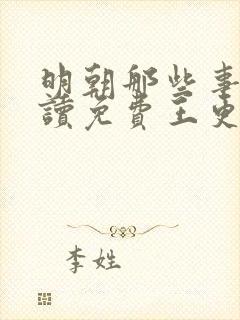 明朝那些事
讀免費王史
李姓